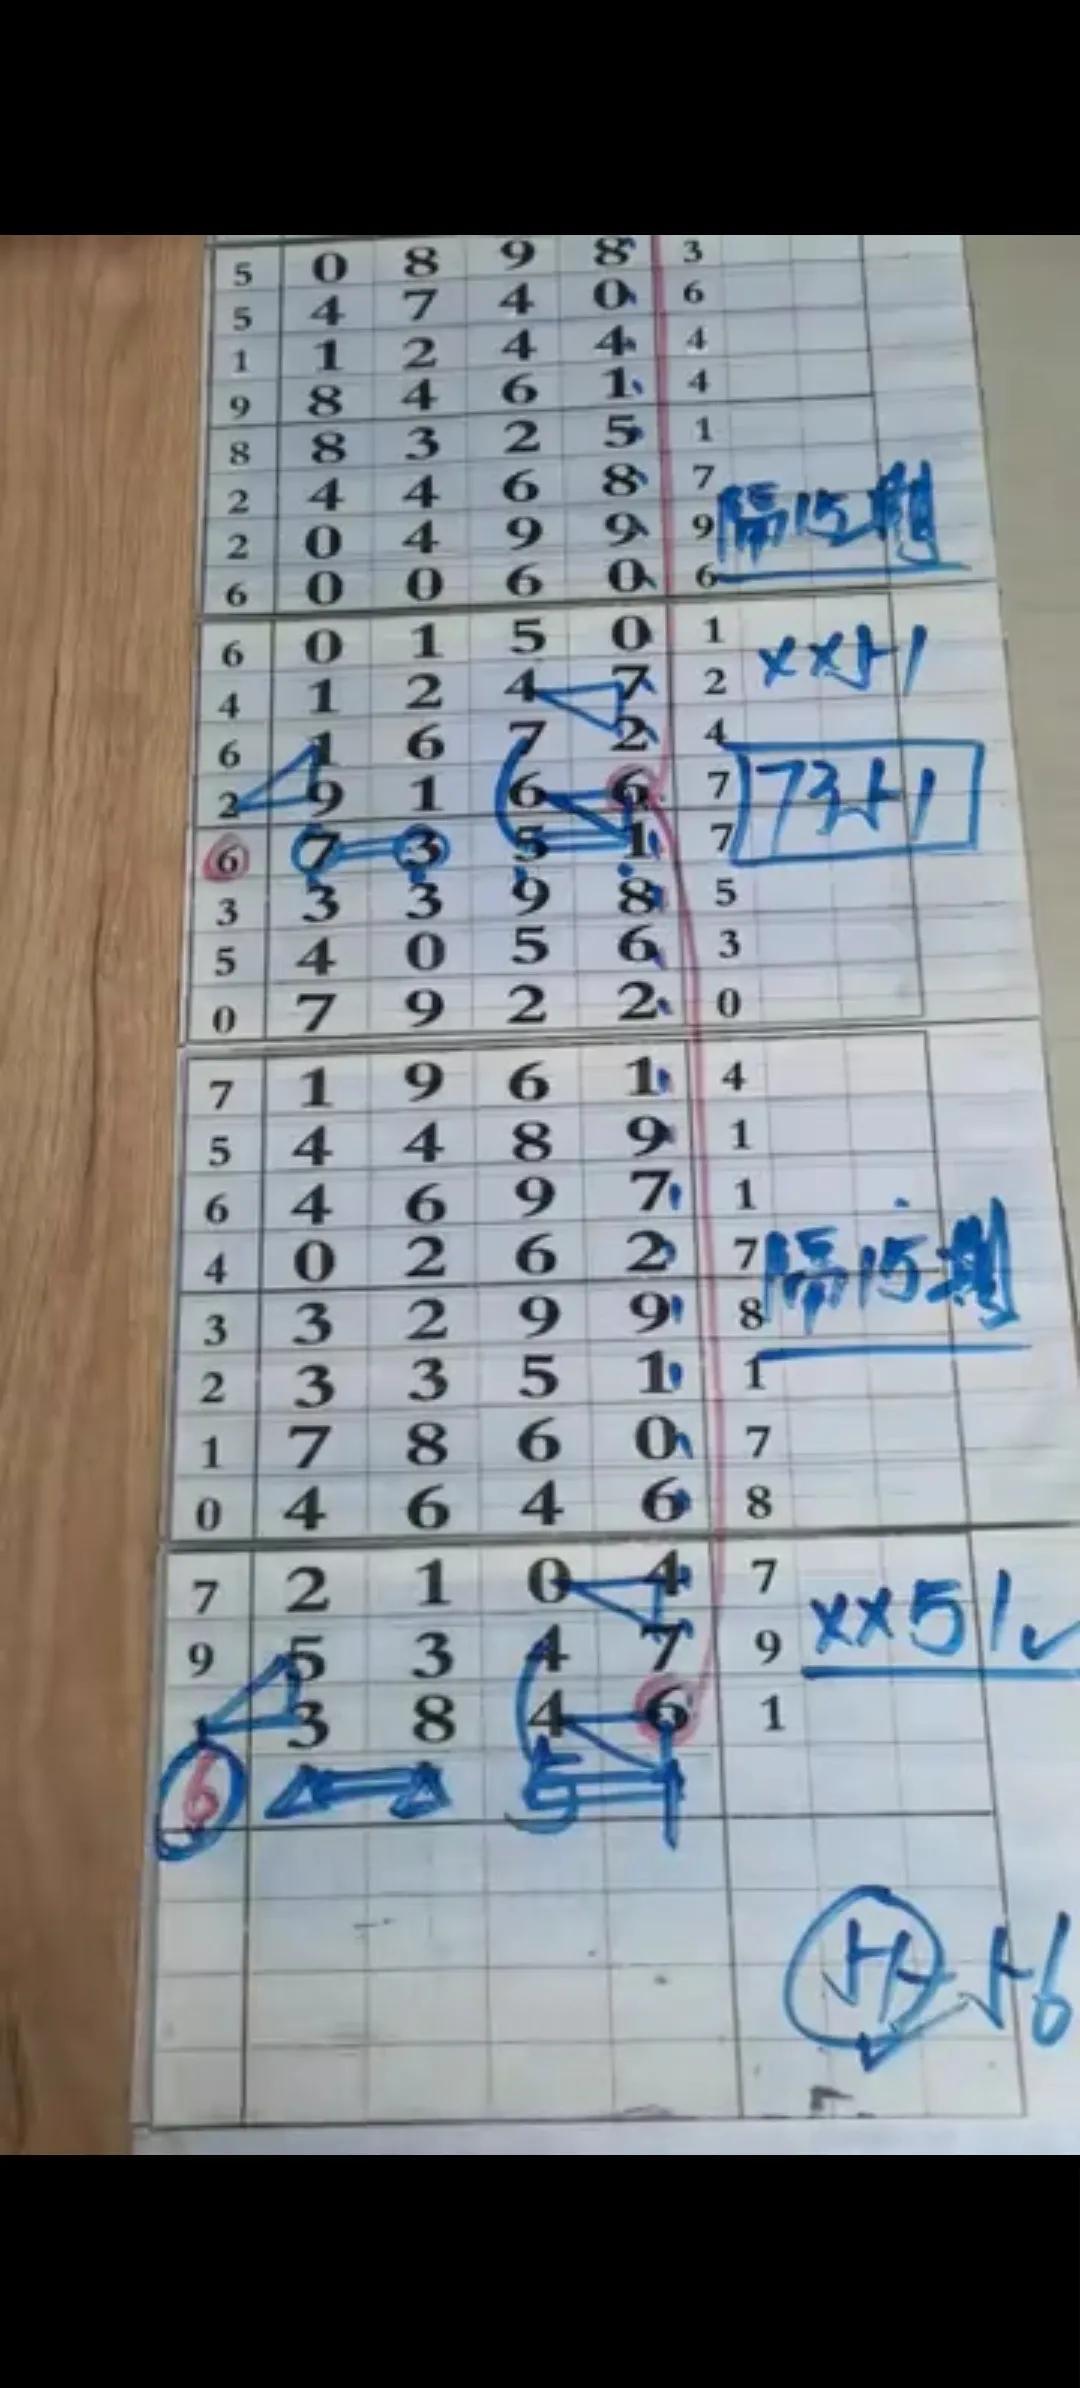 5 0 8 9 8 3
5 4 7 4 0 6
1 1 2 4 4 4
9 8 4 6 1 4
8 8 3 2 5 1
2 4 4 6 8 7
2 0 4 9 9 9 隔15期
6 0 0 6 0 6
6 0 1 5 0 1 XX51
4 1 2 4 7 2
6 1 6 7 2 4
2 9 1 6 6 7 7351
6 7 3 5 1 7
3 3 3 9 8 5
5 4 0 5 6 3
0 7 9 2 2 0
7 1 9 6 1 4
5 4 4 8 9 1
6 4 6 9 7 1
4 0 2 6 2 7 隔15期
3 3 2 9 9 8
2 3 3 5 1 1
1 7 8 6 0 7
0 4 6 4 6 8
7 2 1 0 4 7
9 5 3 4 7 9 XX51
1 3 8 4 6 1
6 5 1